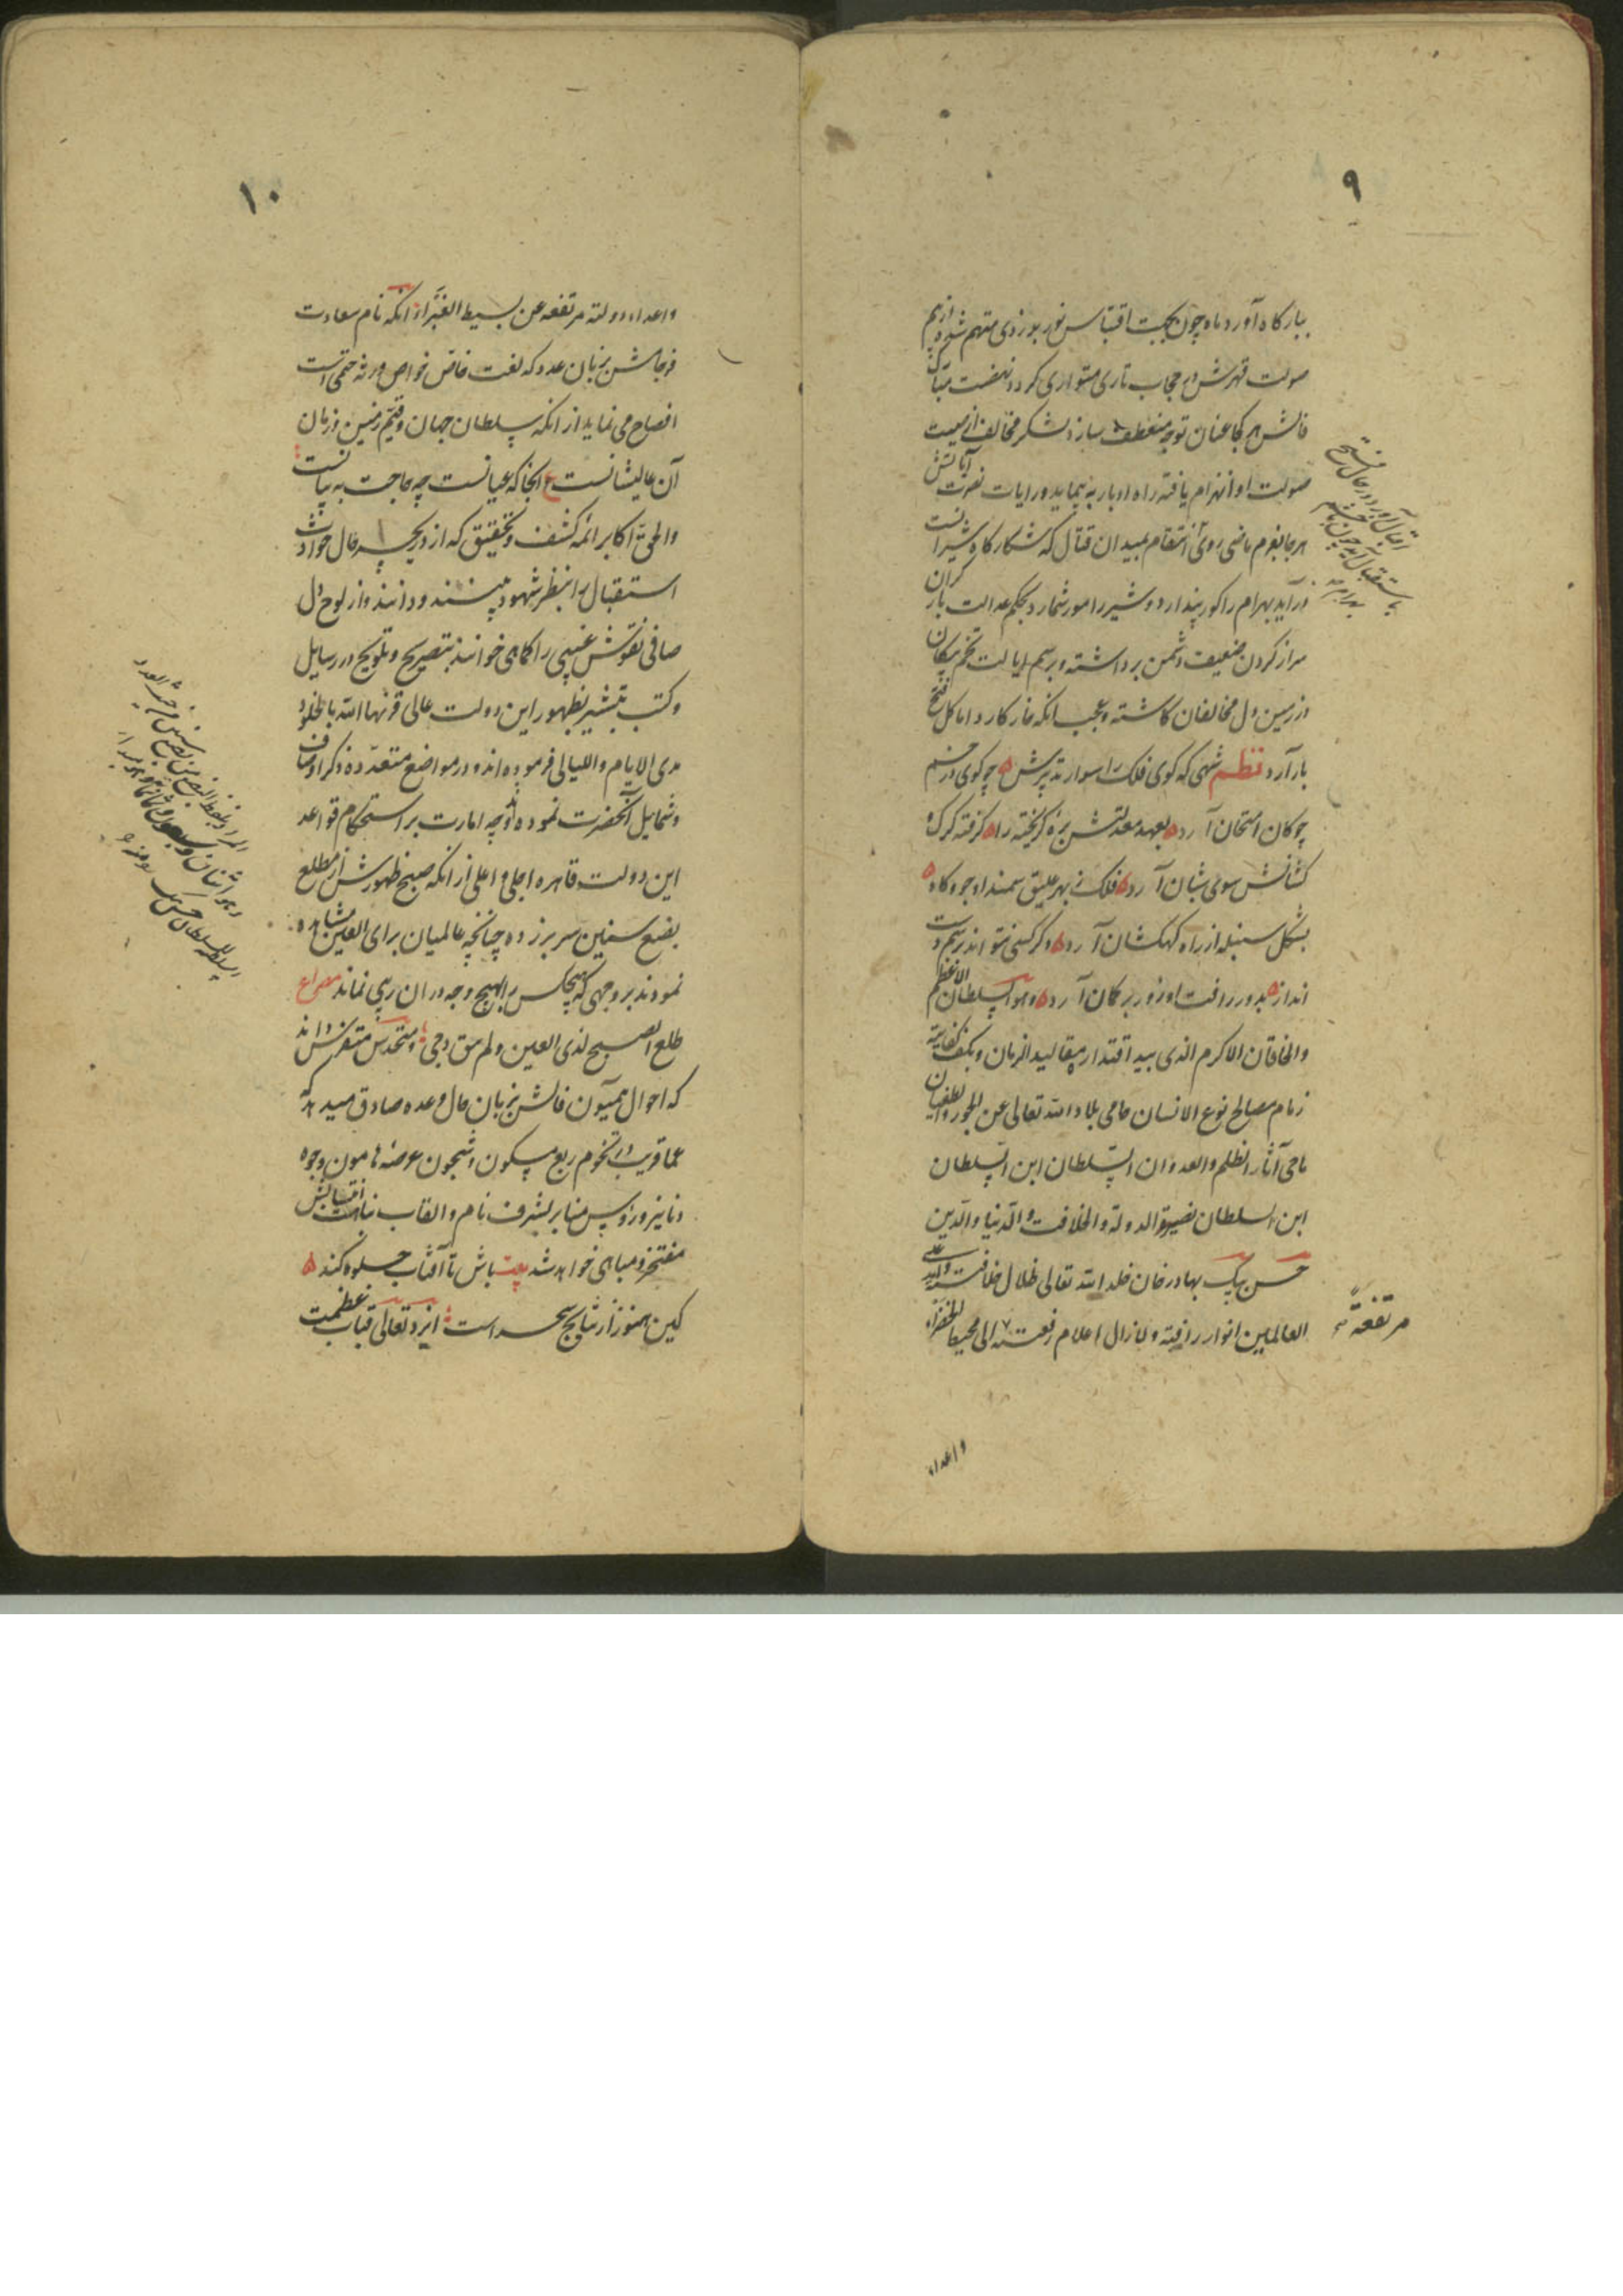 ۹
ببارگاه آورد ماه چون بجهت اقتباس نور بدزدی متهم شده از بیم
صولت قهرش در حجاب تاری متواری کردد نهضت مبارک
فالش هر کجا عنان توجه منعطف سازد لشکر مخالف از هیبت
صولت او انهزام یافته راه ادبار به پیماید و رایات نصرت آیاتش
هر جا بعزم ماضی روی انتقام بمیدان قتال که شکارکاه شیرانست
درآید بهرام را کور پندارد و شیر را مور شمارد بحکم عدالت بار کران
سر از کردن ضعیف دشمن برداشته و برسم ایالت تخم پیکان
در زمین دل مخالفان کاشته و عجب انکه خار کارد اما کل فتح
بار آرد نظم شهی که کوی فلک را سوار تدبیرش چو کوی در خم
چوکان امتحان آرد بعهد معدلتش بزه کریخته را کرفته کرک و
کشانش سوی شبان آرد فلک ز بهر علیق سمند او جو و کاه
بشکل سنبله از راه کهکشان آرد دکر کسی نتواند برسم دست
انداز بدور رافت او زور بر کمان آرد و هو السلطان الاعظم
والخاقان الاکرم الذی بید اقتداره مقالید الزمان و بکف کفایته
زمام مصالح نوع الانسان حامی بلاد الله تعالی عن الجور والطغیان
ماحی آثار الظلم والعدوان السلطان ابن السلطان
ابن السلطان نصیر الدولة والخلافت والدنیا والدین
حسن بیک بهادرخان خلد الله تعالی ظلال خلافته علی
العالمین انوار رافته و لازال اعلام رفعته الی محیط الخضراء
مرتفعة
واعداء
۱۰
واعداء دولته مرتفعه عن بسیط الغبرا از انکه نام سعادت
فرجامش بزبان عدد که لغت خاص خواص ورثه ختمی است
افصاح می نماید از انکه سلطان جهان و قیّم زمین و زمان
آن عالیشانست ع انجا که عیانست چه حاجت به بیانست
والحق اکابر ائمه کشف و تحقیق که از دریچه حال حوادث
استقبال را بنظر شهود بینند و دانند و از لوح دل
صافی نقوش غیبی را کماهی خوانند بتصریح و تلویح در رسایل
و کتب تبشیر بظهور این دولت عالی قرنها الله بالخلود
مدی الایام واللیالی فرموده اند و در مواضع متعدّده ذکر اوصاف
و شمایل آنحضرت نموده و اوجه امارت بر استحکام قواعد
این دولت قاهره اجلی و اعلی از انکه صبح ظهورش از مطلع
بضع سنین سر بر زده چنانچه عالمیان برای العین مشاهده
نمودند بر وجهی که هیچکس را بهیچ وجه در ان ریبی نماند مصراع
طلع الصبح لذی العین و لم یبق دجی و متحدس متفرس داند
که احوال همیون فالش بزبان حال وعده صادق میدهد که
عما قریب در تخوم ربع مسکون و شجون عرصه هامون وجوه
دنانیر و رؤس منابر بشرف نام و القاب نباهت انتسابش
مفتخر و مباهی خواهد شد بیت باش تا آفتاب جلوه کند
کین هنوز از نتایج سحر است ایزد تعالی قباب عظمت